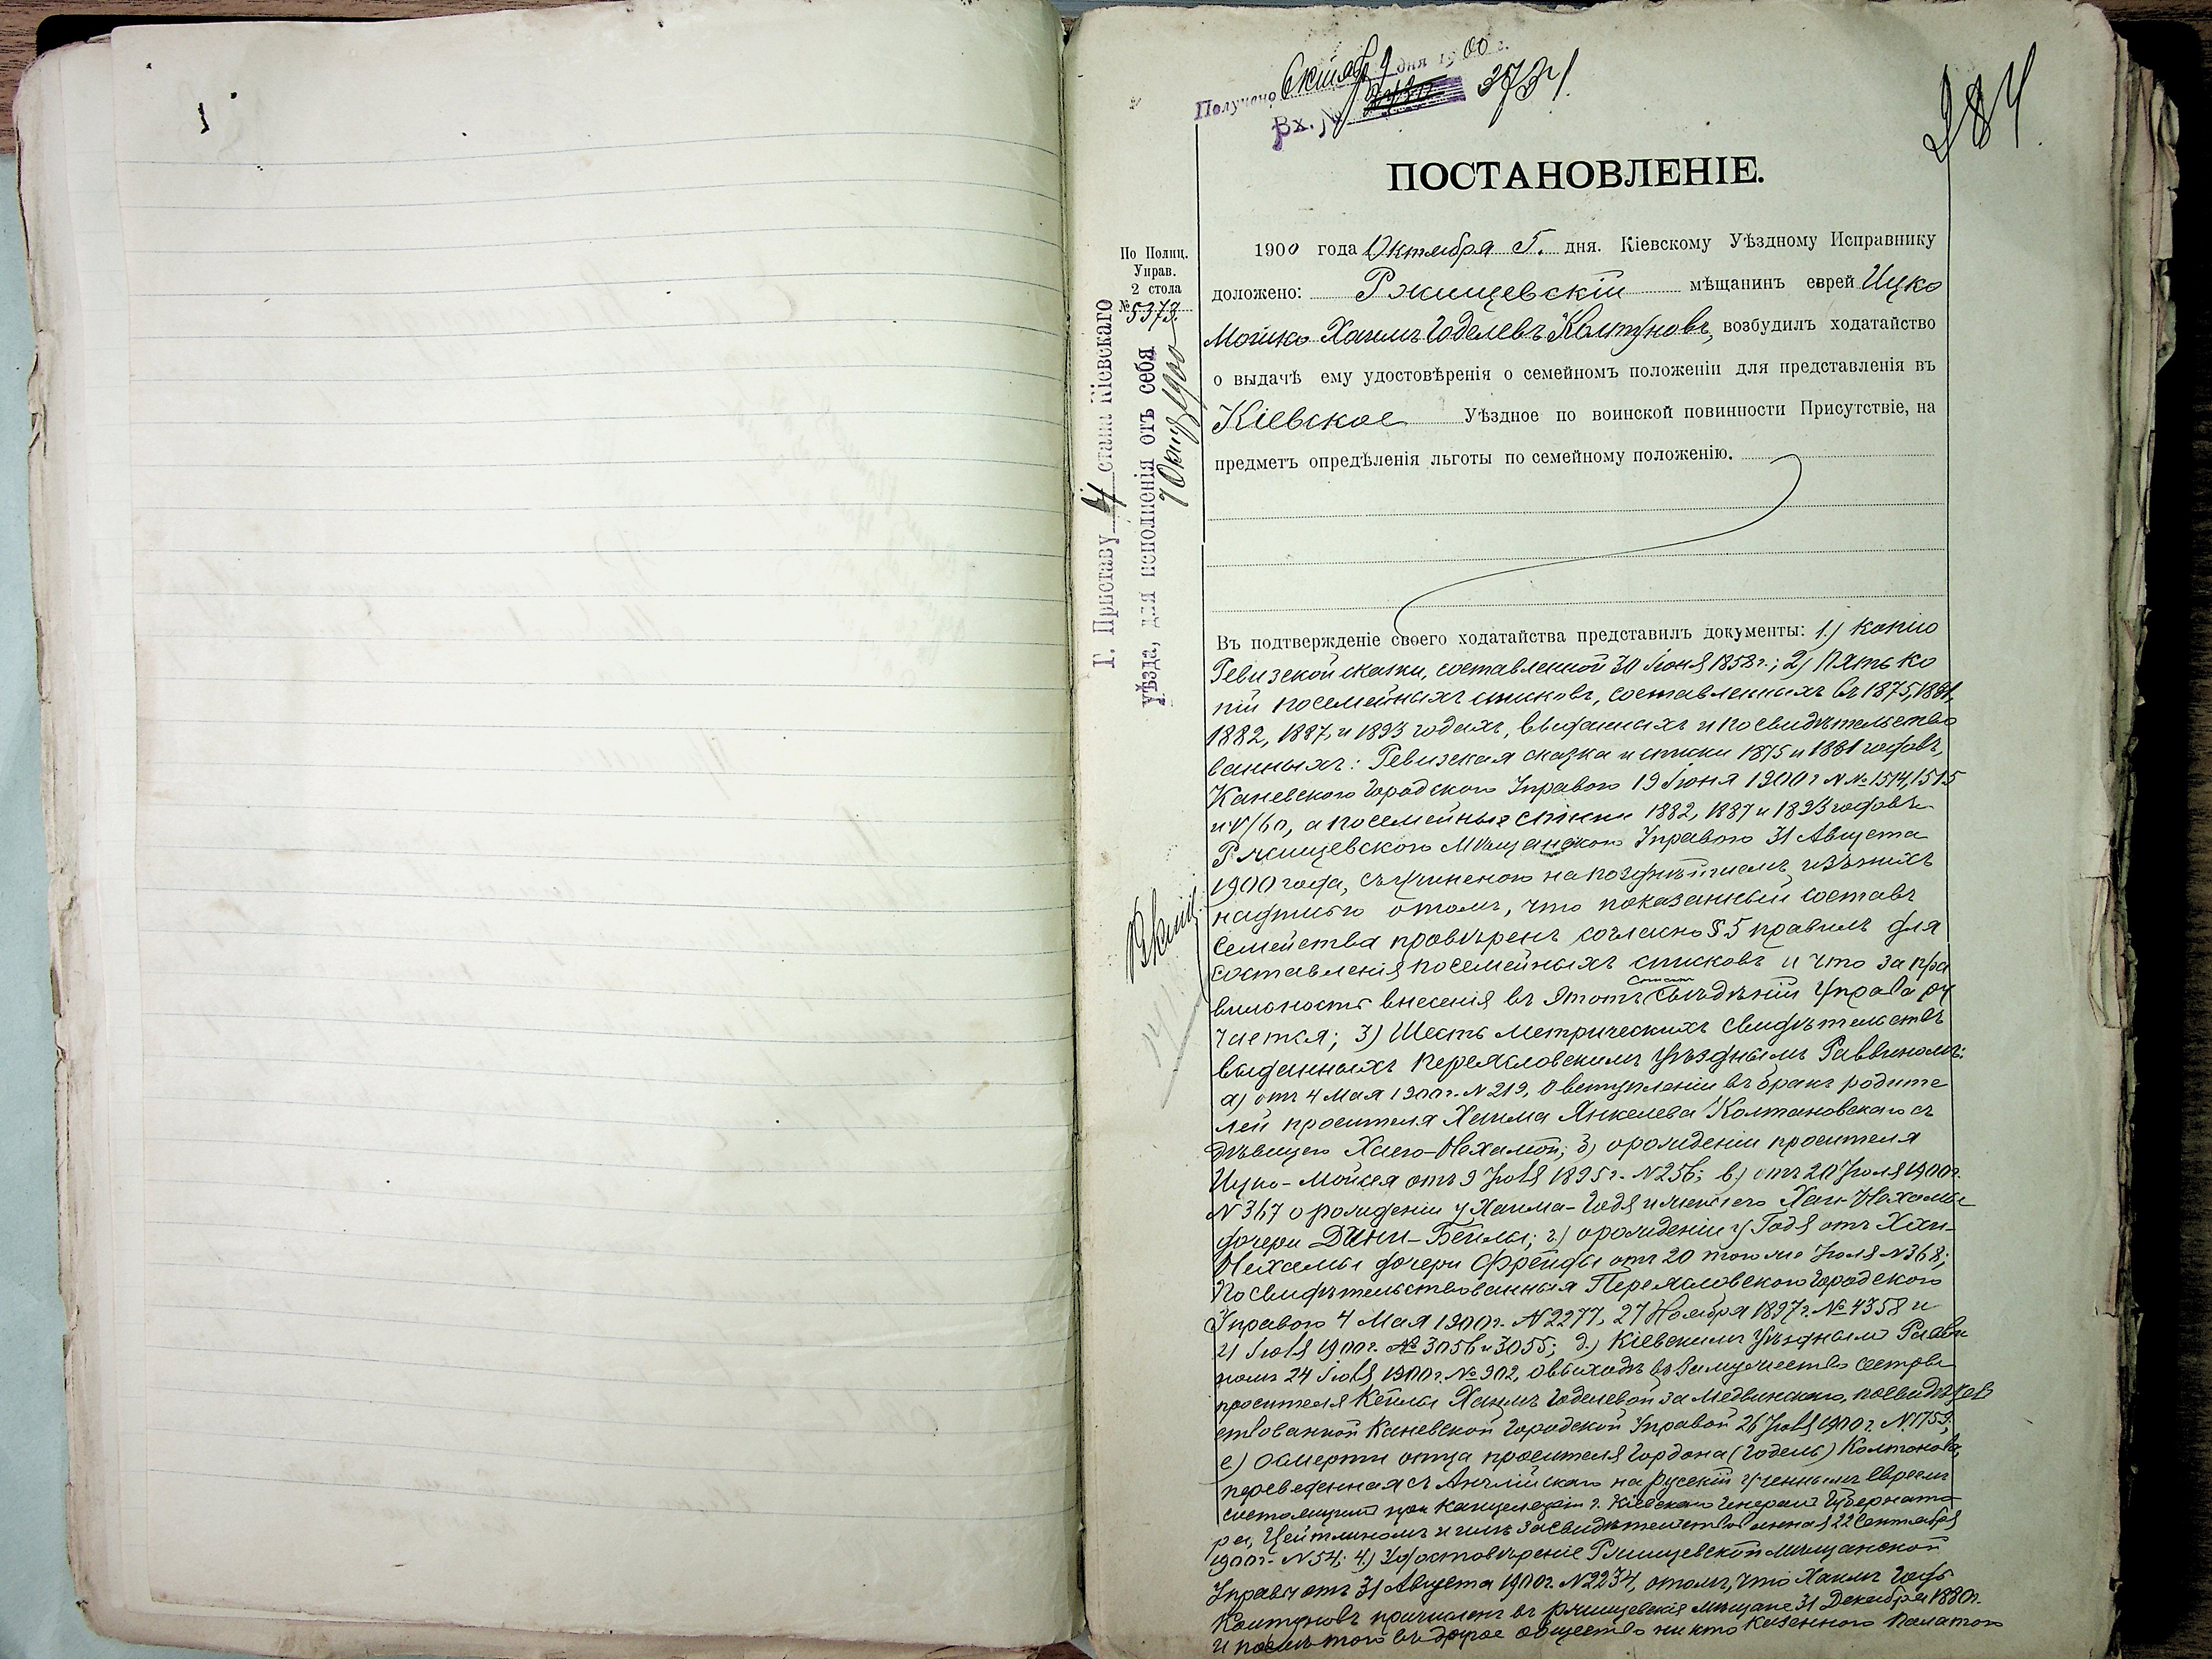 Получено Октяб 9 дня 1900 г.
Вх. № 3731.
284
ПОСТАНОВЛЕНІЕ.
По Полиц.
Управ.
2 стола
№ 5373.
Г. Приставу 4 стана Кіевскаго
уѣзда, для исполненія отъ себя
7 Окт 1900
1900 года Октября 5. дня. Кіевскому Уѣздному Исправнику
доложено: Ржищевскій мѣщанинъ еврей Ицко
Мошко Хаимъ Годелевъ Колтуновъ, возбудилъ ходатайство
о выдачѣ ему удостовѣренія о семейномъ положеніи для представленія въ
Кіевское Уѣздное по воинской повинности Присутствіе, на
предметъ опредѣленія льготы по семейному положенію.
Въ подтвержденіе своего ходатайства представилъ документы: 1.) копію
Ревизской сказки, составленной 30 Іюня 1858 г.; 2) Пять ко
пій посемейныхъ списковъ, составленныхъ въ 1875, 1881,
1882, 1887, и 1893 годахъ, выданныхъ и посвидѣтельство
ванныхъ: Ревизская сказка и списки 1875 и 1881 годовъ,
Каневскою Городскою Управою 19 Іюня 1900 г. N№ 1514, 1515
а посемейные списки 1882, 1887 и 1893 годовъ
Ржищевскою Мѣщанскою Управою 31 Августа
1900 года, съ учиненою на позднѣйшемъ изъ нихъ
надписью о томъ, что показанный составъ
семейства провѣренъ согласно § 5 правилъ для
составленія посемейныхъ списковъ и что за пра
вильность внесенія въ этотъ списокъ свѣдѣній Управа ру
чается; 3) Шесть метрическихъ свидѣтельствъ
выданныхъ Переяславскимъ уѣзднымъ Раввиномъ:
а) отъ 4 Мая 1900 г. N 219, о вступленіи въ бракъ родите
лей просителя Хаима Янкелева Колтановскаго съ
дѣвицею Хаею-Нехамой; б) о рожденіи просителя
Ицко-Мойсея отъ 9 Іюля 1895 г. N 256; в) отъ 20 Іюля 1900 г.
N 367 о рожденіи у Хаима-Годя и жены его Хаи-Нехамы
дочери Дини-Бейлы; г) о рожденіи у Годя отъ Хаи-
Нехамы дочери Фрейды отъ 20 того же Іюля N 368;
Посвидѣтельствованныя Переяславскою Городскою
Управою 4 Мая 1900 г. N 2277, 27 Ноября 1897 г. № 4358 и
21 Іюля 1900 г. № 3056 и 3055; д.) Кіевскимъ Уѣзднымъ Равви
номъ 24 Іюля 1900 г. № 902, о выходѣ въ замужество сестры
просителя Кейлы Хаимъ Годелевой за Медвинскаго, посвидѣтель
ствованной Каневской Городской Управой 26 Іюля 1900 г. N 1759;
е) о смерти отца просителя Гордона (Годель) Колтонова,
переведенная съ Англійскаго на русскій ученымъ евреемъ
состоящимъ при канцеляріи г. Кіевскаго Генералъ Губернато
ра, Цейтлиномъ и имъ засвидѣтельствованная 22 Сентября
1900 г. N 54; 4.) Удостовѣреніе Ржищевской мѣщанской
Управы отъ 31 Августа 1900 г. N 2234, о томъ, что Хаимъ Годь
Колтуновъ причисленъ въ ржищевскіе мѣщане 31 Декабря 1880 г.
и послѣ того въ другое общество никто Казенною Палатою